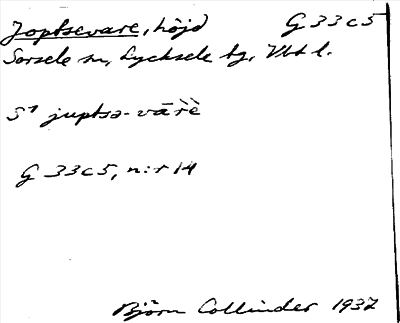 Joptsevare, höjd G 33 c 5
Sorsele sn, Lycksele tg, Vbt l.
S¹ juptsə-vārè̀
G 33 c 5, n:r 14
Björn Collinder 1937